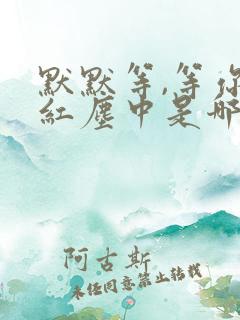 默默等,等你
红尘中是哪
阿古斯
未经同意禁止转载